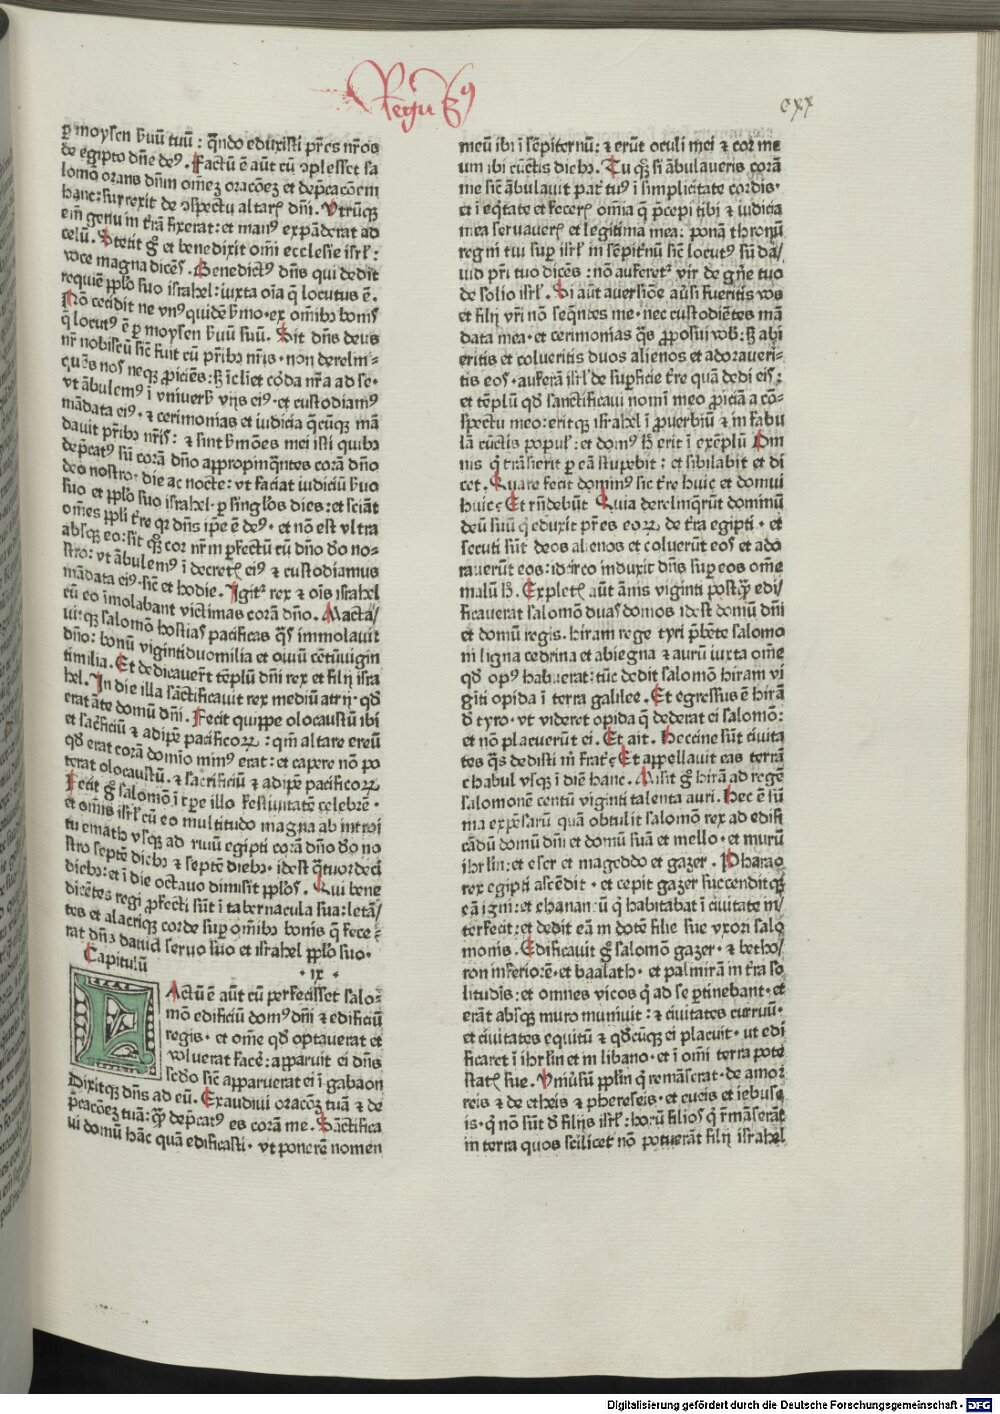 Regū 3⁹
cxx
ꝑ moysen ẜuū tuū : qn̄do eduxisti pr̄es nr̄os
de egipto dn̄e de⁹. Factū ē aūt cū ↄplesset sa
lomō orans dn̄m om̄eʒ oracōeʒ et dep̄cacōem
hanc: surrexit de ↄspectu altarꝭ dn̄i. Vtrūqꝫ
em̄ genu in t̄rā fixerat: et man⁹ expāderat ad
celū. Stetit gͦ et benedixit om̄i ecclesie isrl̓:
voce magna dicēs. Benedict⁹ dn̄s qui dedit
requiē ppl̓o suo israhel: iuxta oīa q̄ locutus ē.
Nō cecidit ne vn⁹ quidē ẜmo. ex om̄ibꝫ bonis
q̄ locut⁹ ē ꝑ moysen ẜuū suū. Sit dn̄s deus
nr̄ nobiscū sic̄ fuit cū pr̄ibꝫ nr̄is. non derelin-
quēs nos neqꝫ ꝓiciēs: sꝫ īcliet cōda nr̄a ad se.
vt ābulem⁹ ī vniuerẜ vijs ei⁹. et custodiam⁹
mādata ei⁹. ⁊ cerimonias et iudicia q̄cūqꝫ mā
dauit pr̄ibꝫ nr̄is: ⁊ sint ẜmōes mei isti quibꝫ
dep̄cat⁹ sū corā dn̄o appropinq̄ntes corā dn̄o
deo nostro. die ac nocte: vt faciat iudiciū ẜuo
suo et ppl̓o suo israhel. ꝑ singl̓os dies: et sciāt
om̄es ppl̓i t̄re qꝛ dn̄s ip̄e ē de⁹. et nō est vltra
absqꝫ eo: sit qꝫ cor nr̄m ꝑfectū cū dn̄o dō no-
stro: vt ābulem⁹ ī decretꝭ ei⁹ ⁊ custodiamus
mādata ei⁹. sic̄ et hodie. Igit̄ rex ⁊ oīs israhel
cū eo īmolabant victimas corā dn̄o. Macta/
uitqꝫ salomō hostias pacificas q̄s immolauit
dn̄o: bouū vigintiduomilia et ouiū cētūvigin
timilia. Et dedicauer̄t tēplū dn̄i rex et filij isra
hel. In die illa sāctificauit rex mediū atrij. qd̓
erat āte domū dn̄i. Fecit quippe olocaustū ibi
et sac̄ficiū ⁊ adipē pacificoꝝ: qm̄ altare ereū
qd̓ erat corā domīo min⁹ erat: et capere nō po
terat olocaustū. ⁊ sacrificiū ⁊ adipē pacificoꝝ
Fecit gͦ salomō ī tp̄e illo festiuitatē celebrē.
et om̄is isrl̓ cū eo multitudo magna ab introi
tu emath vsqꝫ ad riuū egipti corā dn̄o dō no
stro septē diebꝫ ⁊ septē diebꝫ. idest q̄tuordecī
diebꝫ: et ī die octauo dimisit ppl̓os. Qui bene
dicētes regi ꝓfecti sūt ī tabernacula sua: letā/
tes et alacriqꝫ corde suꝑ om̄ibꝫ bonis q̄ fece-
rat dn̄s dauid seruo suo et israhel ppl̓o suo.
Capitulū
. ix .
FActū ē aūt cū perfecisset salo-
mō edificiū dom⁹ dn̄i ⁊ edificiū
regis. et om̄e qd̓ optauerat et
voluerat facē: apparuit ei dn̄s
scd̓o sic̄ apparuerat ei ī gabaon
Dixitqꝫ dn̄s ad eū. Exaudiui oracōꝫ tuā ⁊ de
p̄cacōeʒ tuā: qꝫ dep̄cat⁹ es corā me. Sāctifica
ui domū hāc quā edificasti. vt ponerē nomen
meū ibi ī sēpiternū: ⁊ erūt oculi mei ⁊ cor me
um ibi cūctis diebꝫ. Tu qꝫ si ābulaueris corā
me sic̄ ābulauit pat̄ tu⁹ ī simplicitate cordis.
et ī eq̄tate et fecerꝭ om̄ia q̄ p̄cepi tibi ⁊ iudicia
mea seruauerꝭ et legitima mea: ponā thronū
regni tui suꝑ isrl̓ in sēpit̄nū sic̄ locut⁹ sū da/
uid pr̄i tuo dicēs: nō auferet̄ vir de gn̄e tuo
de solio isrl̓. Si aūt auersiōe aūsi fueritis vos
et filij vr̄i nō seq̄ntes me. nec custodiētes mā
data mea. et cerimonias q̄s ꝓposui vob̓: sꝫ abi
eritis et colueritis deos alienos et adoraueri-
tis eos. auferā isrl̓ de suꝑficie t̄re quā dedi eis:
et tēplū qd̓ sanctificaui nomī meo ꝓiciā a cō-
spectu meo: eritqꝫ israhel ī ꝓuerbiū ⁊ in fabu
lā cūctis popul̓: et dom⁹ h̄ erit ī exēplū Om
nis q̄ trāsierit ꝑ eā stupebit: et sibilabit et di
cet. Quare fecit domin⁹ sic t̄re huic et domui
huic? Et rn̄debūt Quia derelinq̄rūt dominū
deū suū q̄ eduxit pr̄es eoꝝ de t̄ra egipti. et
secuti sūt deos alienos et coluerūt eos et ado
rauerūt eos: idcirco induxit dn̄s suꝑ eos om̄e
malū h̄. Expletꝭ aūt ānis viginti postqꝫ edi/
ficauerat salomō duas domos idest domū dn̄i
et domū regis. hiram rege tyri p̄bēte salomo
ni ligna cedrina et abiegna ⁊ aurū iuxta om̄e
qd̓ op⁹ habuerat: tūc dedit salomō hiram vi
gīti opida ī terra galilee. Et egressus ē hirā
d̓ tyro. vt videret opida q̄ dederat ei salomō:
et nō placuerūt ei. Et ait. Heccine sūt ciuita
tes q̄s dedisti m̄ frat̄? Et appellauit eas terrā
chabul vsqꝫ ī diē hanc. Misit gͦ hirā ad regē
salomonē centū viginti talenta auri. Hec ē sū
ma expēsarū quā obtulit salomō rex ad edifi
cādū domū dn̄i et domū suā et mello. et murū
ihrl̓m: et eser et mageddo et gazer. Pharao
rex egipti ascēdit. et cepit gazer succenditqꝫ
eā igni: et chananeū q̄ habitabat ī ciuitate in/
terfecit: et dedit eā in dotē filie sue vxori salo
monis. Edificauit gͦ salomō gazer. ⁊ betho/
ron inferiorē. et baalath. et palmirā in t̄ra so
litudīs: et omnes vicos q̄ ad se ꝑtinebant. et
erāt absqꝫ muro muniuit: ⁊ ciuitates curruū.
et ciuitates equitū ⁊ qd̓cūqꝫ ei placuit. ut edi
ficaret ī ihrl̓m et in libano. et ī om̄i terra pote
statꝭ sue. Vniūsū ppl̓m q̄ remāserat. de amor
reis ⁊ de etheis ⁊ phereseis. et eueis et iebuse
is. q̄ nō sūt d̓ filijs isrl̓: horū filios q̄ r̄māserāt
in terra quos scilicet nō potuerāt filij israhel
Digitalisierung gefördert durch die Deutsche Forschungsgemeinschaft - DFG